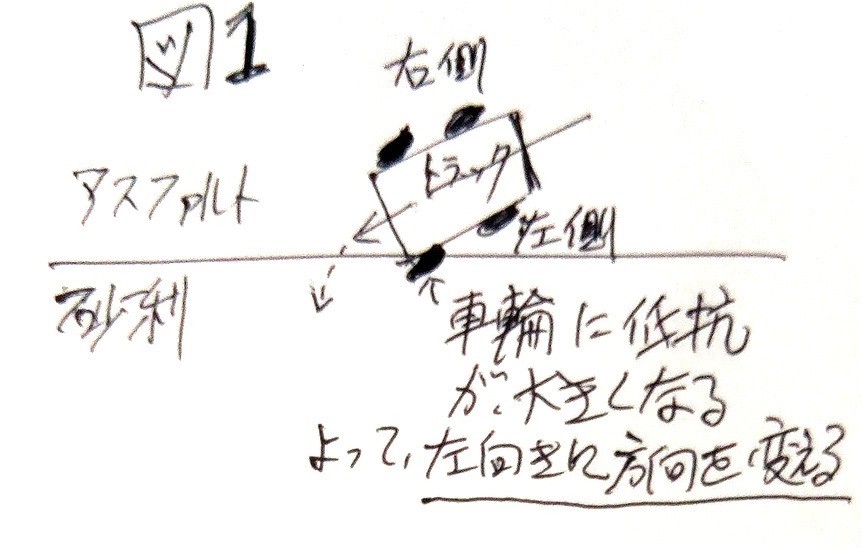 図1
右側
トラック
アスファルト
左側
砂利
車輪に低抗
が大きくなる
よって、左向きに方向を変える